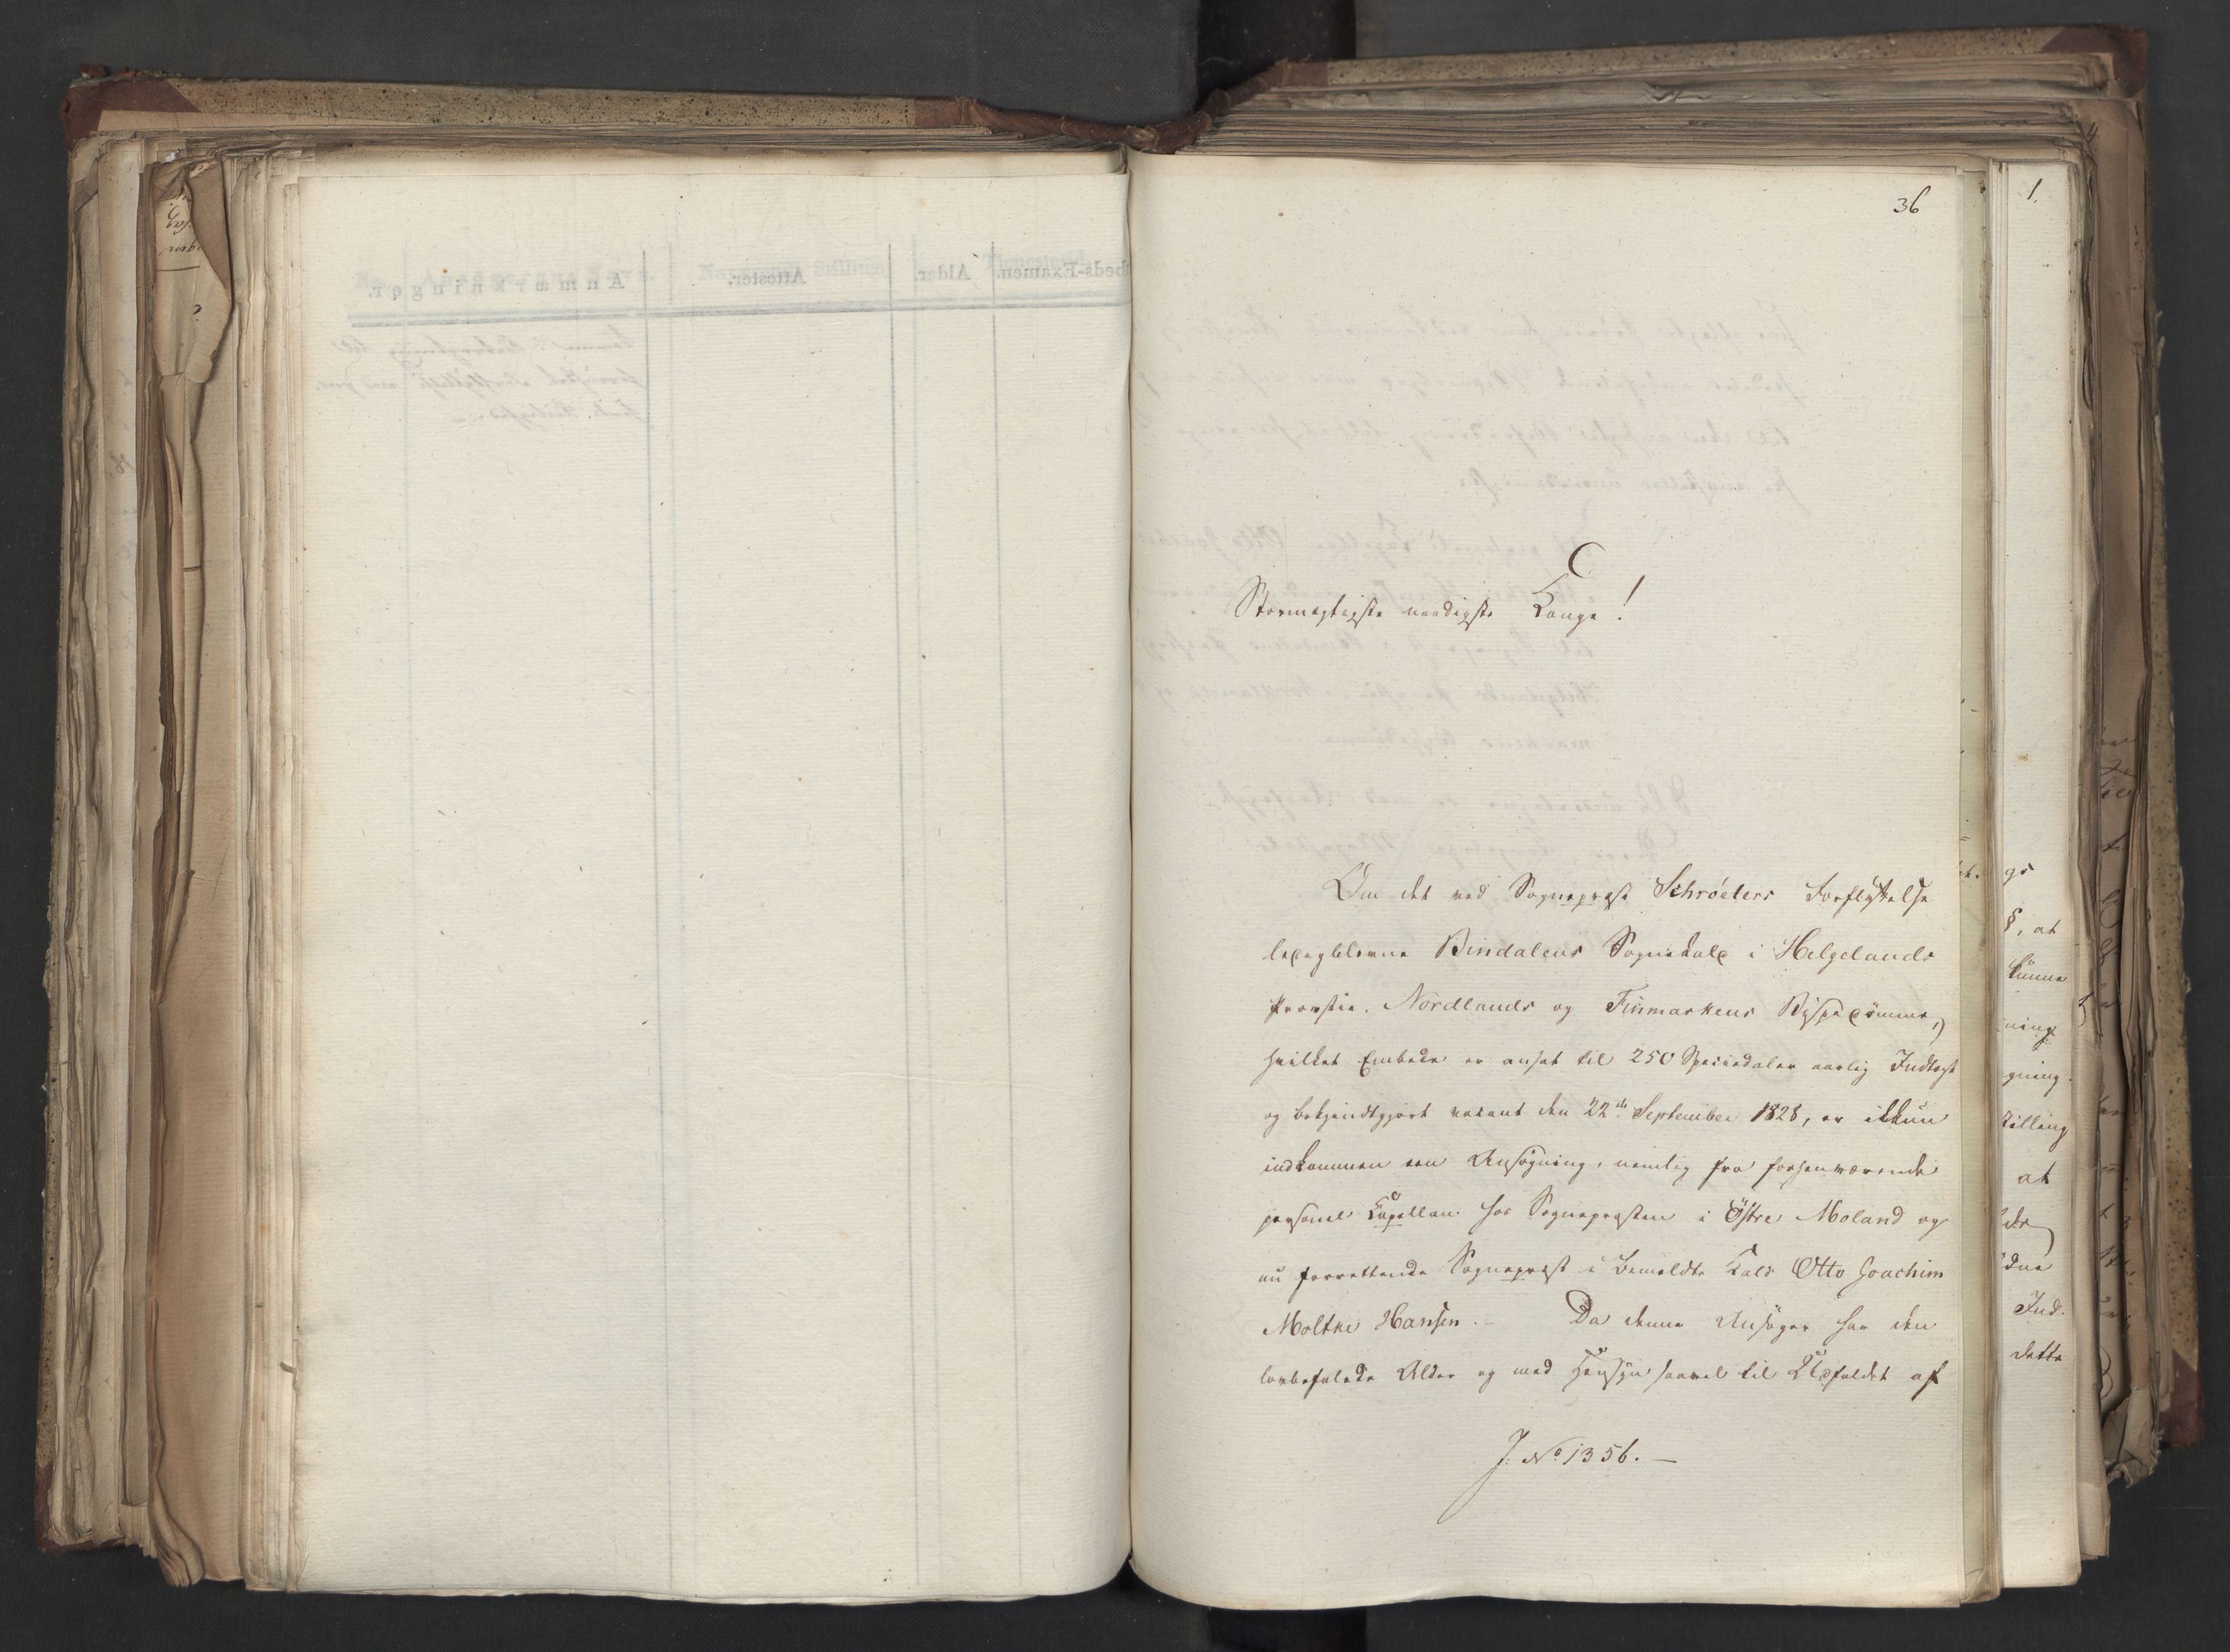 36
Stormægtigste naadigste Konge!
Om det ved Sognepræst Schröeters Forflyttelse
ledigblevne Bindalens Sognekald i Helgelands
Provstie, Nordlands og Finmarkens Bispedömme,
hvilket Embede er ansat til 250 Speciedaler aarlig Indtægt
og bekjendtgjort vacant den 22de September 1828, er ikkun
indkommen een Ansøgning, nemlig fra forhenværende
personel Capellan hos Sognepræsten i Östre Moland og
nu forrettende Sognepræst i bemeldte Kald Otto Joachim
Moltke Hansen. - Da denne Ansøger har den
lovbefalede Alder og med Hensyn saavel til Udfaldet af
J. No 1356. -
1.
gs
§, at
kunne
ning
gning
stilling
at
dne
Ind-
dette